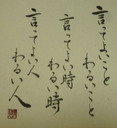 言ってよいこと
わるいこと
言ってよい時
わるい時
言ってよい人
わるい人